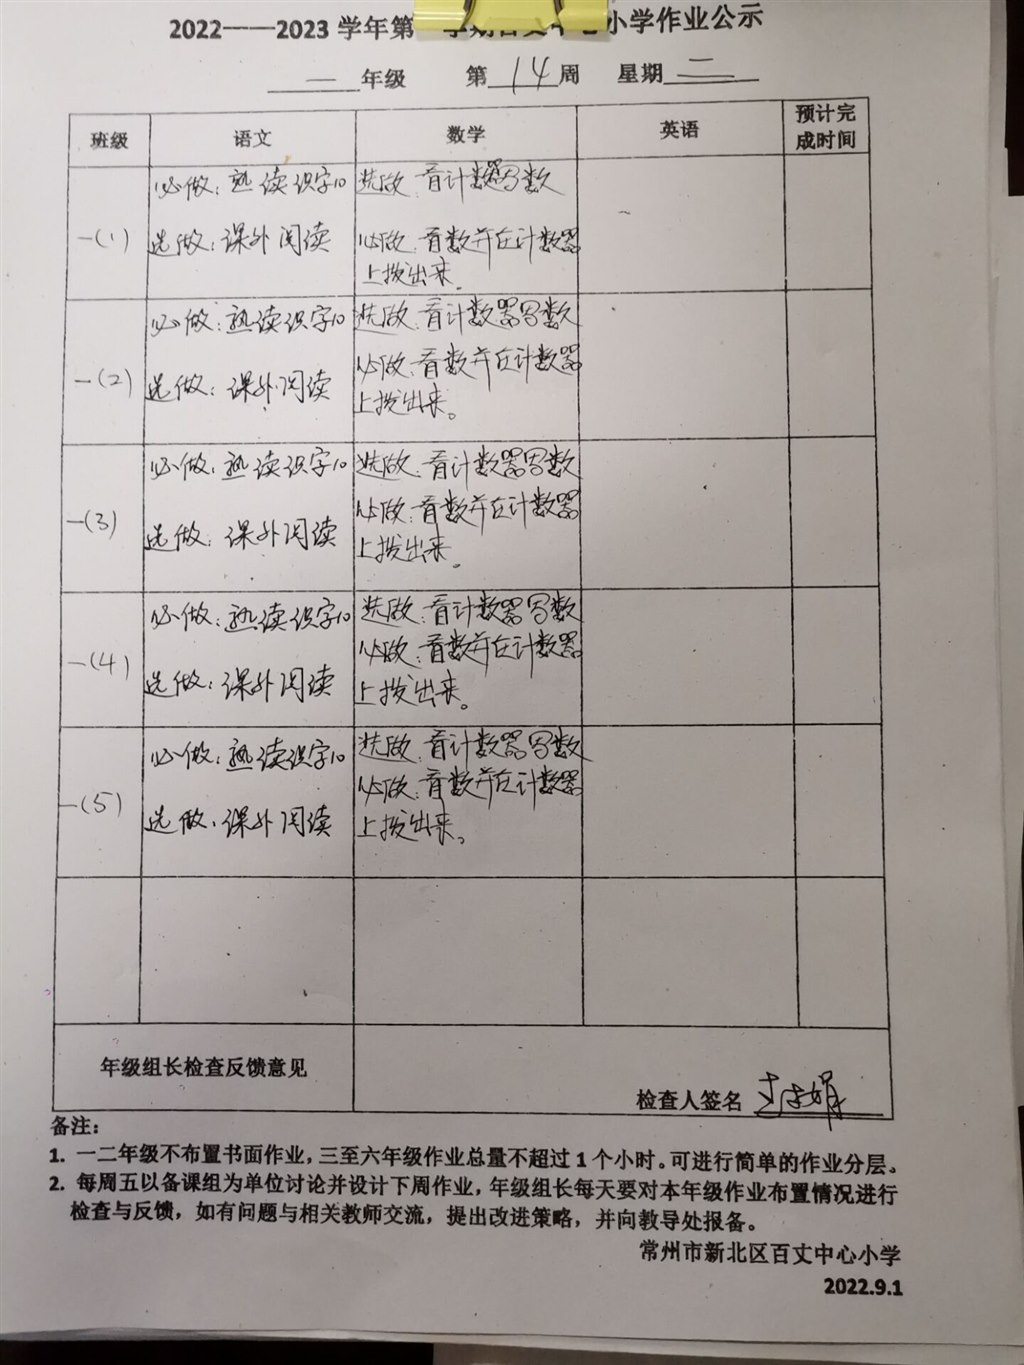 2022——2023 学年第 学期百丈中心小学作业公示
一 年级 第 14 周 星期 二
班级 语文 数学 英语 预计完成时间
一(1)
必做：熟读识字10
选做：课外阅读
选做：看计数器写数
必做：看数并在计数器
上拨出来。
一(2)
必做：熟读识字10
选做：课外阅读
选做：看计数器写数
必做：看数并在计数器
上拨出来。
一(3)
必做：熟读识字10
选做：课外阅读
选做：看计数器写数
必做：看数并在计数器
上拨出来。
一(4)
必做：熟读识字10
选做：课外阅读
选做：看计数器写数
必做：看数并在计数器
上拨出来。
一(5)
必做：熟读识字10
选做：课外阅读
选做：看计数器写数
必做：看数并在计数器
上拨出来。
年级组长检查反馈意见
检查人签名
备注：
1. 一二年级不布置书面作业，三至六年级作业总量不超过 1 个小时。可进行简单的作业分层。
2. 每周五以备课组为单位讨论并设计下周作业，年级组长每天要对本年级作业布置情况进行
检查与反馈，如有问题与相关教师交流，提出改进策略，并向教导处报备。
常州市新北区百丈中心小学
2022.9.1